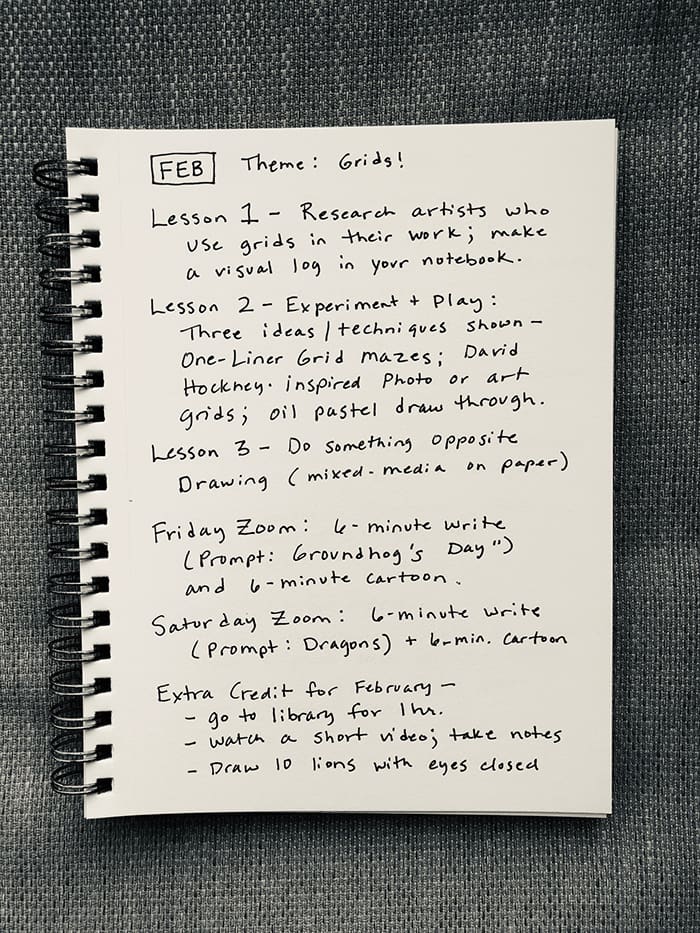 FEB Theme: Grids!
Lesson 1 - Research artists who
use grids in their work; make
a visual log in your notebook.
Lesson 2 - Experiment + Play:
Three ideas / techniques shown -
One-Liner Grid mazes; David
Hockney-inspired Photo or art
grids; oil pastel draw through.
Lesson 3 - Do something opposite
Drawing (mixed-media on paper)
Friday Zoom: 6-minute write
(Prompt: Groundhog's Day")
and 6-minute cartoon.
Saturday Zoom: 6-minute write
(Prompt: Dragons) + 6-min. cartoon
Extra Credit for February -
- go to library for 1 hr.
- watch a short video; take notes
- Draw 10 lions with eyes closed